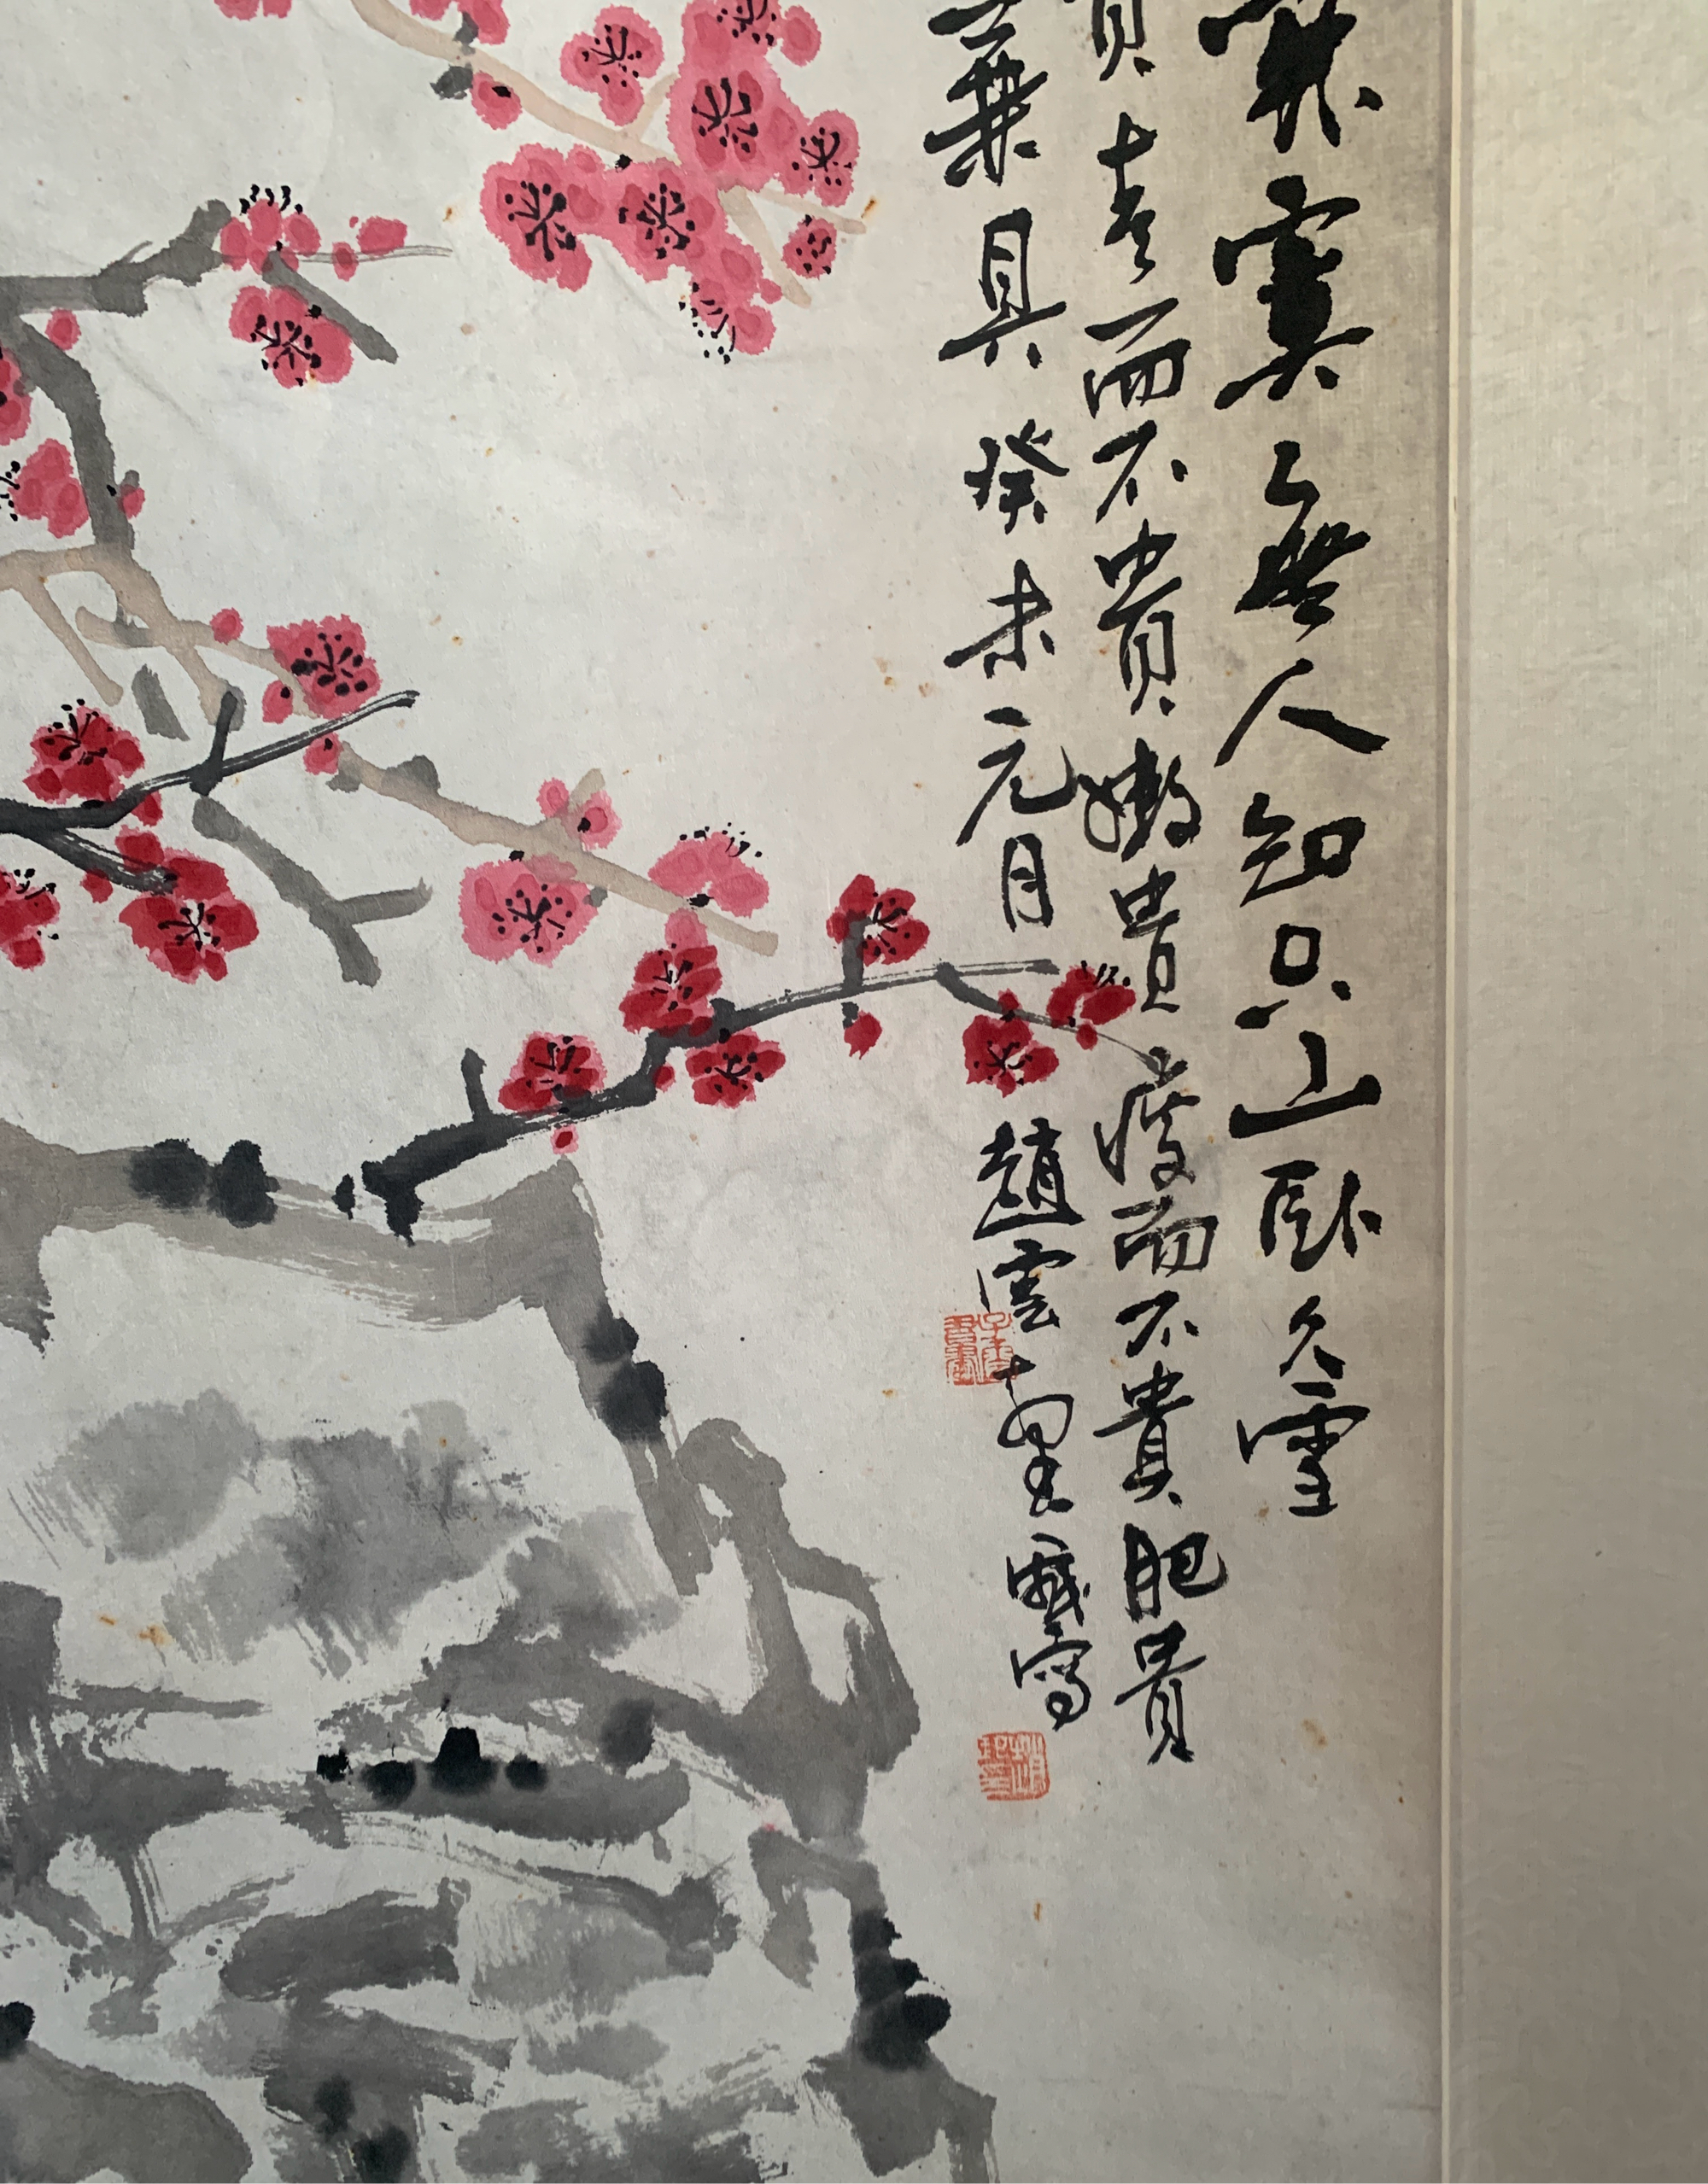 寞無人知只山臥久雪
貴老而不貴嫩貴瘦而不貴肥貴
兼具癸未元月趙雲壑戲寫